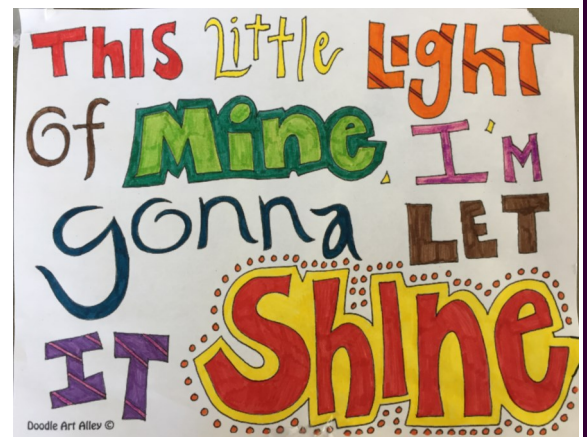 THIS Little LIGHT
Of Mine, I'M
gonna LET
IT SHINE
Doodle Art Alley ©